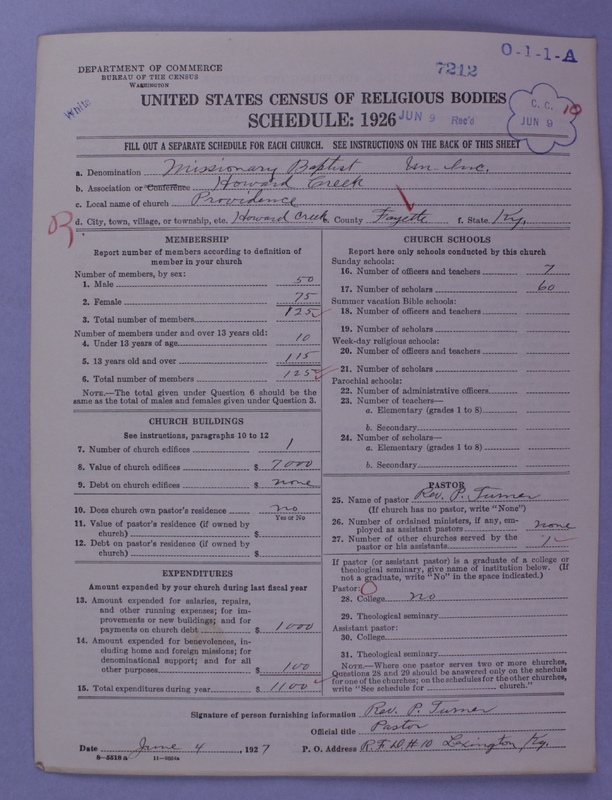 O-1-1-A
7212
DEPARTMENT OF COMMERCE
BUREAU OF THE CENSUS
WASHINGTON
White
UNITED STATES CENSUS OF RELIGIOUS BODIES
SCHEDULE: 1926
JUN 9 Rec'd
C. C. 10
JUN 9
FILL OUT A SEPARATE SCHEDULE FOR EACH CHURCH. SEE INSTRUCTIONS ON THE BACK OF THIS SHEET
a. Denomination Missionary Baptist Un. Inc.
b. Association or Conference Howard Creek
c. Local name of church Providence
R
d. City, town, village, or township, etc. Howard Creek e. County Fayette f. State Ky.
MEMBERSHIP
Report number of members according to definition of
member in your church
Number of members, by sex:
1. Male 50
2. Female 75
3. Total number of members 125
Number of members under and over 13 years old:
4. Under 13 years of age 10
5. 13 years old and over 115
6. Total number of members 125
NOTE.—The total given under Question 6 should be the
same as the total of males and females given under Question 3.
CHURCH BUILDINGS
See instructions, paragraphs 10 to 12
7. Number of church edifices 1
8. Value of church edifices $ 7000
9. Debt on church edifices $ none
10. Does church own pastor's residence no
Yes or No
11. Value of pastor's residence (if owned by
church) $
12. Debt on pastor's residence (if owned by
church) $
EXPENDITURES
Amount expended by your church during last fiscal year
13. Amount expended for salaries, repairs,
and other running expenses; for im-
provements or new buildings; and for
payments on church debt $ 1000
14. Amount expended for benevolences, in-
cluding home and foreign missions; for
denominational support; and for all
other purposes $ 100
15. Total expenditures during year $ 1100
CHURCH SCHOOLS
Report here only schools conducted by this church
Sunday schools:
16. Number of officers and teachers 7
17. Number of scholars 60
Summer vacation Bible schools:
18. Number of officers and teachers
19. Number of scholars
Week-day religious schools:
20. Number of officers and teachers
21. Number of scholars
Parochial schools:
22. Number of administrative officers
23. Number of teachers—
a. Elementary (grades 1 to 8)
b. Secondary
24. Number of scholars—
a. Elementary (grades 1 to 8)
b. Secondary
PASTOR
25. Name of pastor Rev. P. Turner
(If church has no pastor, write "None")
26. Number of ordained ministers, if any, em-
ployed as assistant pastors none
27. Number of other churches served by the
pastor or his assistants 1
If pastor (or assistant pastor) is a graduate of a college or
theological seminary, give name of institution below. (If
not a graduate, write "No" in the space indicated.)
Pastor:
28. College no
29. Theological seminary
Assistant pastor:
30. College
31. Theological seminary
NOTE.—Where one pastor serves two or more churches,
Questions 28 and 29 should be answered only on the schedule
for one of the churches; on the schedules for the other churches,
write "See schedule for church."
Signature of person furnishing information Rev. P. Turner
Official title Pastor
Date June 4, 1927 P. O. Address R.F.D.#10 Lexington, Ky.